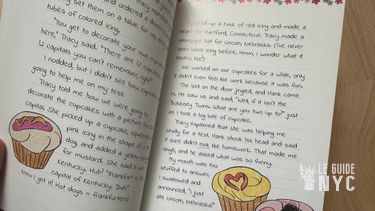 my set them on a table for
tubes of colored icing.
"You get to decorate your own
here," Tracy said, "There are
U capitals you can't remember, right?"
I nodded, but I didn't see how
going to help me on my test.
Tracy told me how we were going to
decorate the cupcakes with a picture for
capital. She picked up a cupcake, squeezed
pink icing in the shape of a
dog, and added a yellow
for mustard. She said it was
Kentucky. Huh?
capital of Kentucky. Duh!
Now I get it! Hot dogs = frankfurters!
I picked up a tube of red icing and made a
heart for Hartford, Connecticut. Tracy made a
hat for Lincoln, Nebraska. (I've never
seen black icing before. Hmm, I wonder what it
tastes like?)
We worked on our cupcakes for a while, only
it didn't even feel like work because it was fun.
The bell on the door jingled, and Hank came
in. He saw us and said, "Well, if it isn't the
Bobbsey Twins. What are you two up to?" just
as I took a big bite of cupcake.
Tracy explained that she was helping me
study for a test. Hank shook his head and said
it sure didn't look like homework. That made me
laugh, and he asked what was so funny.
My mouth was too
stuffed to answer.
I swallowed and
announced, "I just
ate Lincoln, Nebraska!"
LE GUIDE
NYC